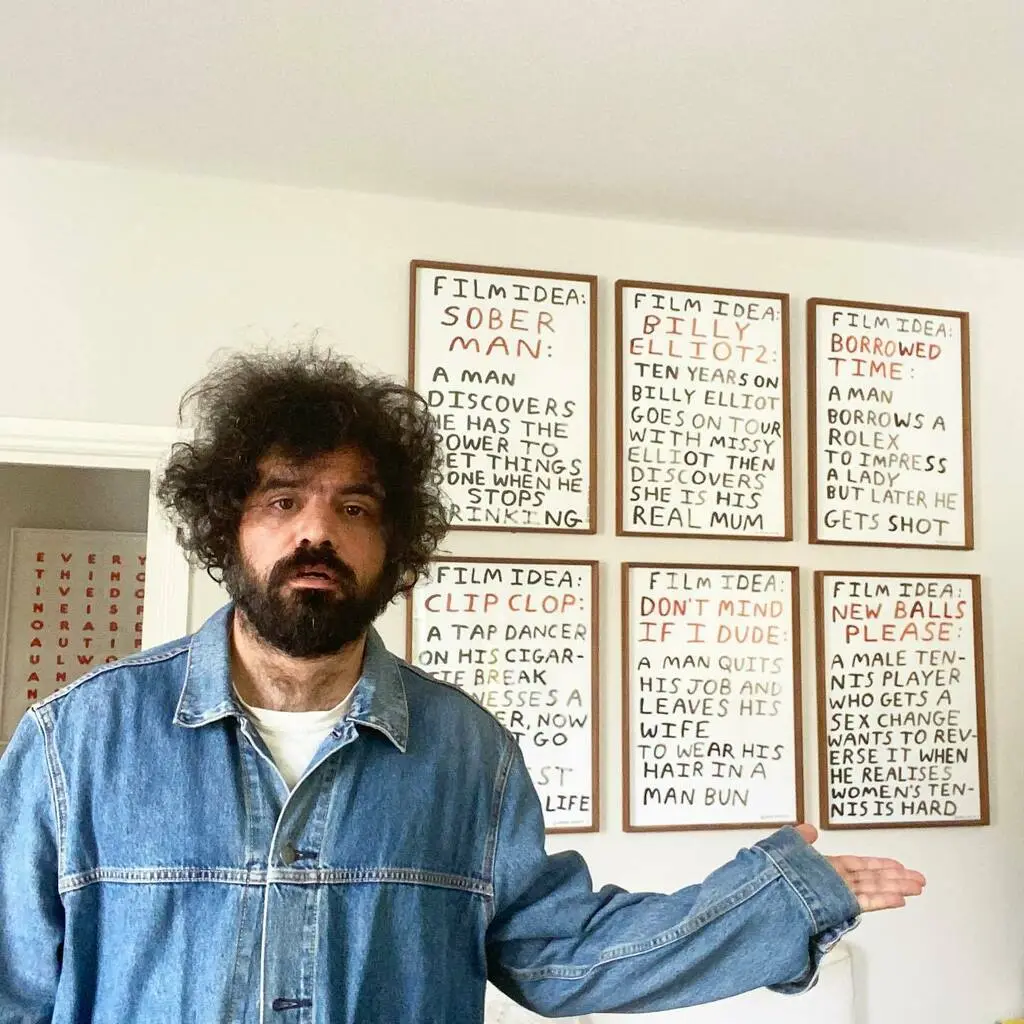 FILM IDEA:
SOBER
MAN:
A MAN
DISCOVERS
HE HAS THE
POWER TO
GET THINGS
DONE WHEN HE
STOPS
DRINKING
FILM IDEA:
BILLY
ELLIOT 2:
TEN YEARS ON
BILLY ELLIOT
GOES ON TOUR
WITH MISSY
ELLIOT THEN
DISCOVERS
SHE IS HIS
REAL MUM
FILM IDEA:
BORROWED
TIME:
A MAN
BORROWS A
ROLEX
TO IMPRESS
A LADY
BUT LATER HE
GETS SHOT
FILM IDEA:
CLIP CLOP:
A TAP DANCER
ON HIS CIGAR-
ETTE BREAK
WITNESSES A
NOW
GO
LIFE
FILM IDEA:
DON'T MIND
IF I DUDE:
A MAN QUITS
HIS JOB AND
LEAVES HIS
WIFE
TO WEAR HIS
HAIR IN A
MAN BUN
FILM IDEA:
NEW BALLS
PLEASE:
A MALE TEN-
NIS PLAYER
WHO GETS A
SEX CHANGE
WANTS TO REV-
ERSE IT WHEN
HE REALISES
WOMEN'S TEN-
NIS IS HARD
E V E R Y